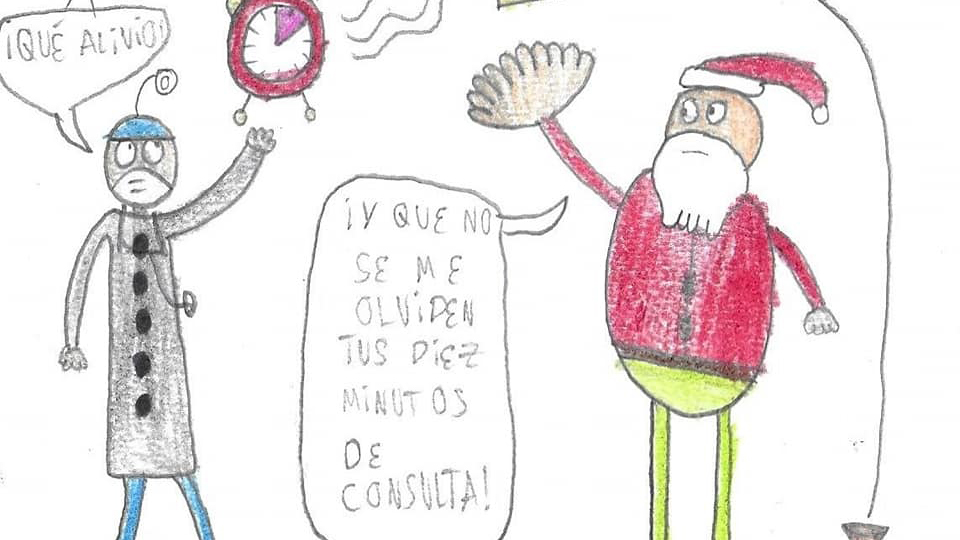 ¡QUÉ ALIVIO!
¡Y QUE NO
SE ME
OLVIDEN
TUS DIEZ
MINUTOS
DE
CONSULTA!